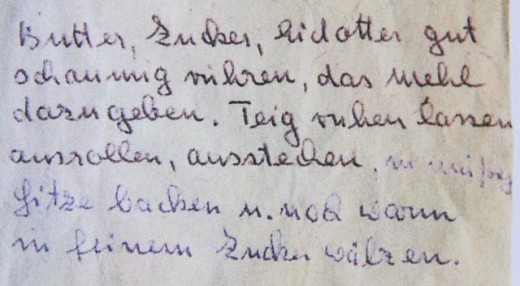 Butter, Zucker, Eidotter gut
schaumig rühren, das Mehl
dazugeben. Teig ruhen lassen
ausrollen, ausstechen, in
Hitze backen u. noch warm
in feinem Zucker wälzen.